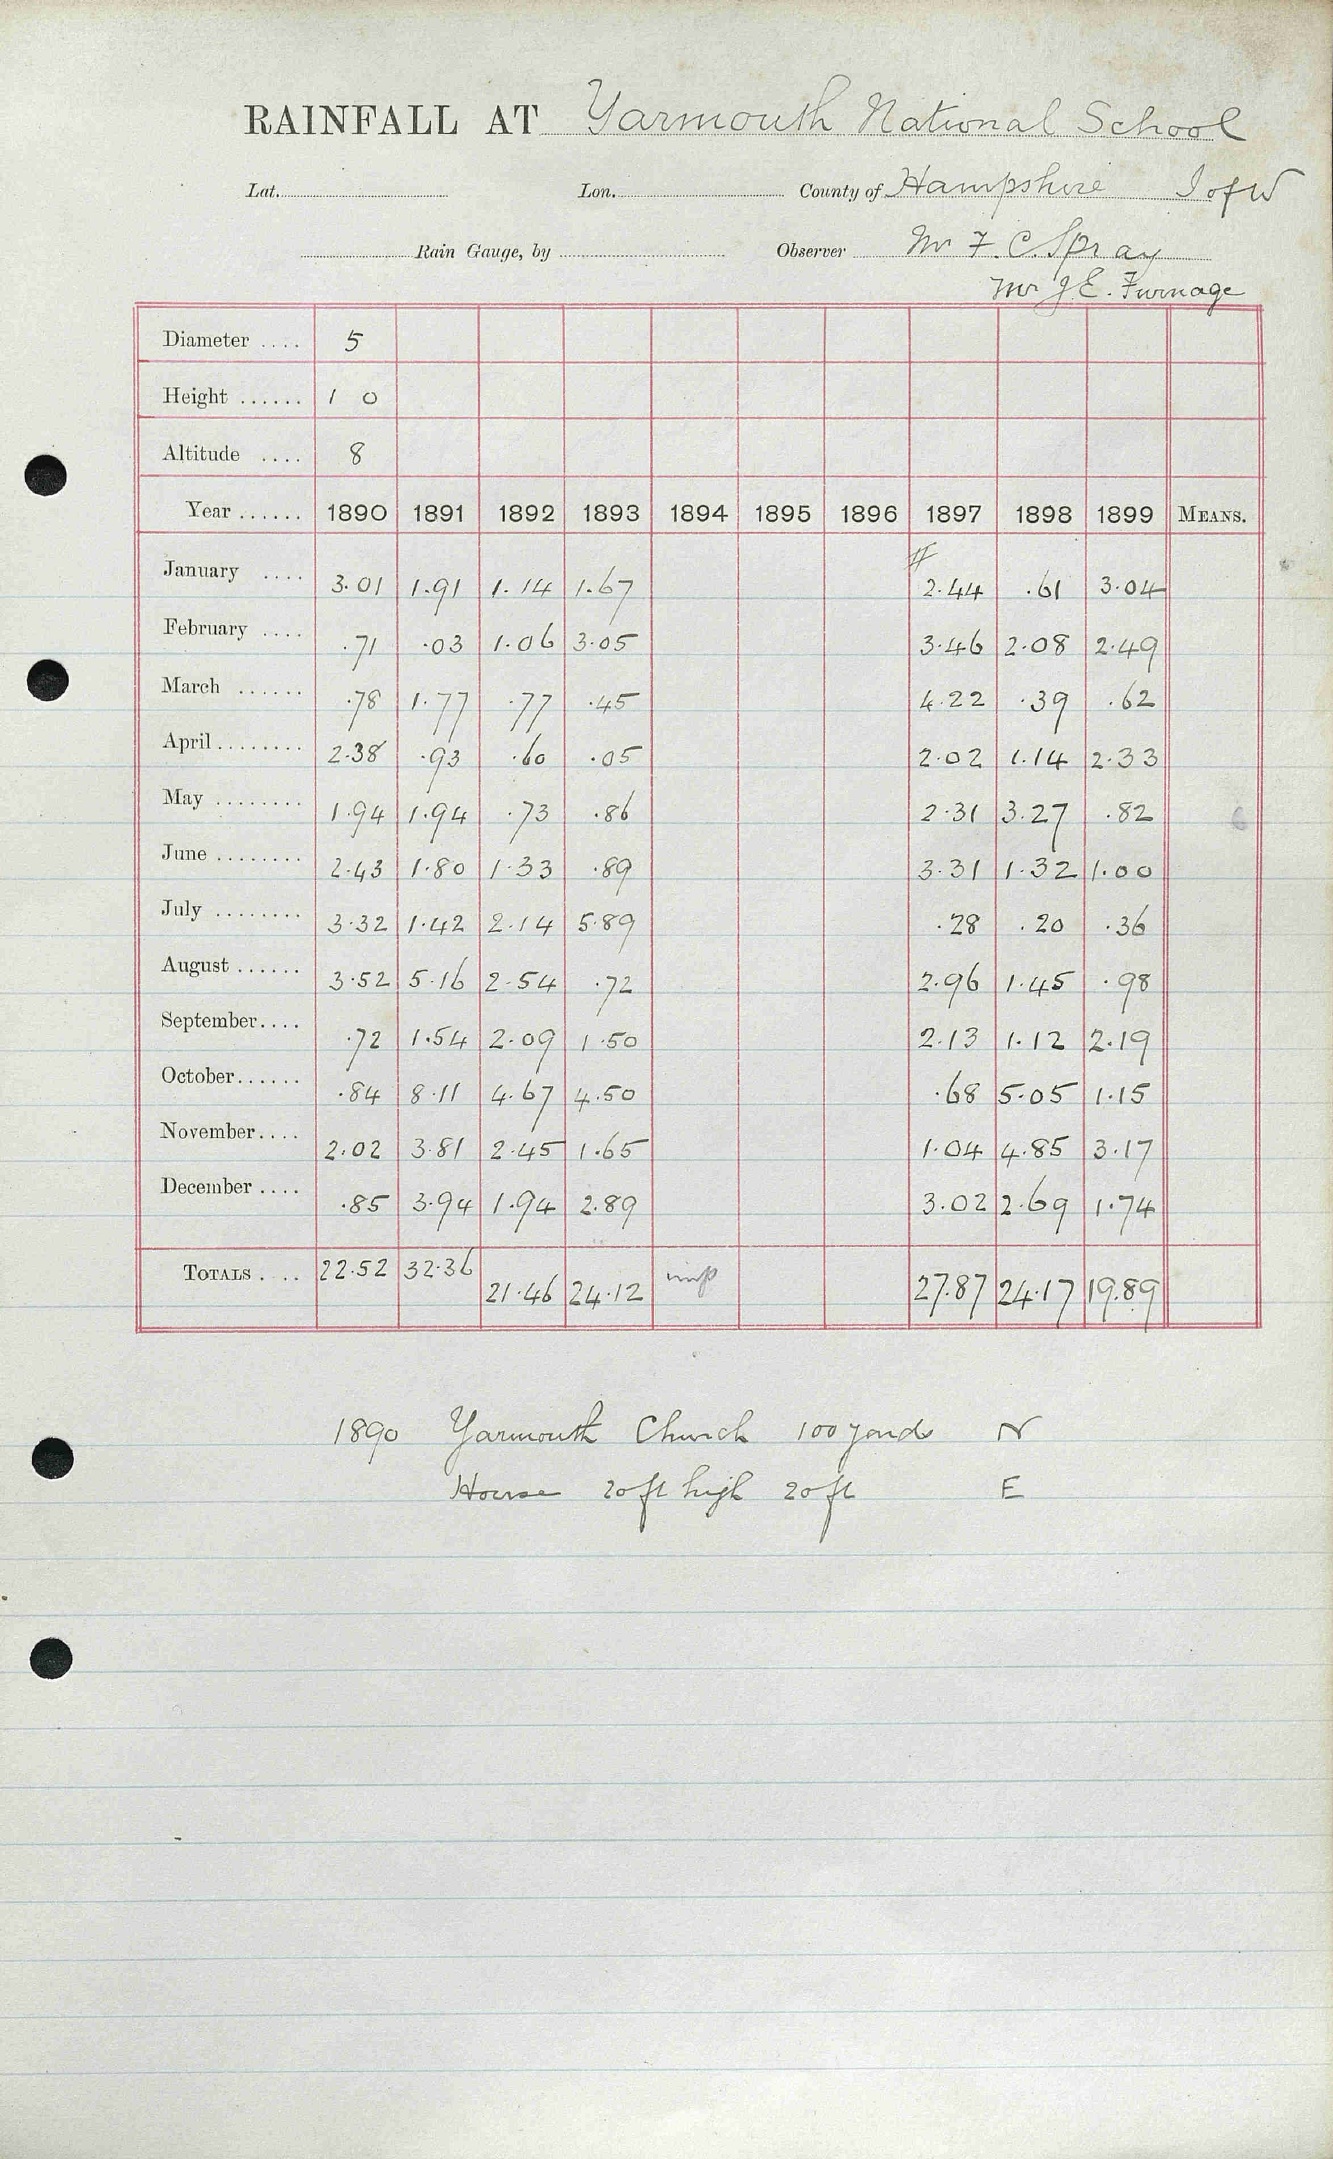 RAINFALL AT Yarmouth National School
Lat. Lon. County of Hampshire I of W
Rain Gauge, by Observer Mr F. C. Spray
Mr J. E. Furnage
Diameter .... 5
Height ...... 1 0
Altitude .... 8
Year ...... 1890 1891 1892 1893 1894 1895 1896 1897 1898 1899 MEANS.
January .... 3.01 1.91 1.14 1.67 2.44 .61 3.04
February .... .71 .03 1.06 3.05 3.46 2.08 2.49
March ...... .78 1.77 .77 .45 4.22 .39 .62
April ........ 2.38 .93 .60 .05 2.02 1.14 2.33
May ........ 1.94 1.94 .73 .86 2.31 3.27 .82
June ........ 2.43 1.80 1.33 .89 3.31 1.32 1.00
July ........ 3.32 1.42 2.14 5.89 .28 .20 .36
August ...... 3.52 5.16 2.54 .72 2.96 1.45 .98
September.... .72 1.54 2.09 1.50 2.13 1.12 2.19
October...... .84 8.11 4.67 4.50 .68 5.05 1.15
November.... 2.02 3.81 2.45 1.65 1.04 4.85 3.17
December .... .85 3.94 1.94 2.89 3.02 2.69 1.74
TOTALS .... 22.52 32.36 21.46 24.12 imp 27.87 24.17 19.89
1890 Yarmouth Church 100 yards N
House 20 ft high 20 ft E